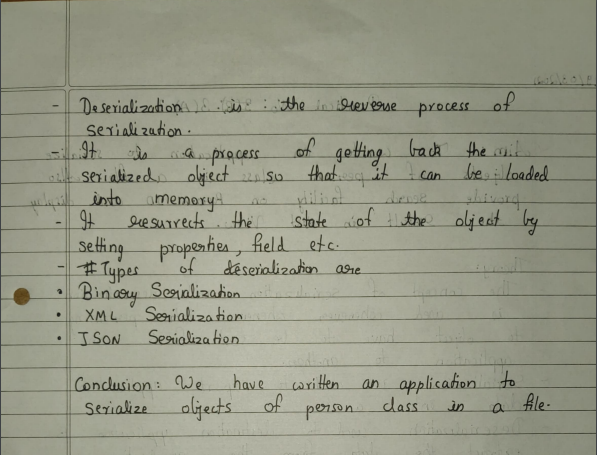 - Deserialization is : the reverse process of
serialization.
- It is a process of getting back the
serialized object so that it can be loaded
into memory.
- It resurrects the state of the object by
setting properties, field etc.
- # Types of deserialization are
• Binary Serialization
• XML Serialization
• JSON Serialization
Conclusion: We have written an application to
serialize objects of person class in a file.